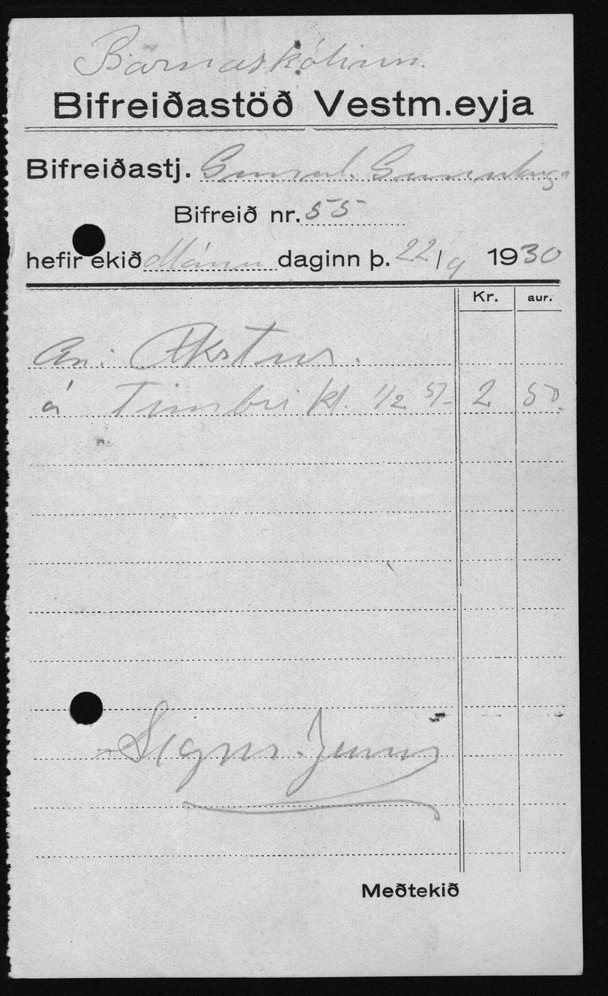 Barnaskólinn.
Bifreiðastöð Vestm.eyja
Bifreiðastj.
Bifreið nr. 55
hefir ekið Mánu daginn þ. 22/9 1930
Kr. aur.
Akstur.
á Timbri kl. 1/2 st- 2 50.
Meðtekið